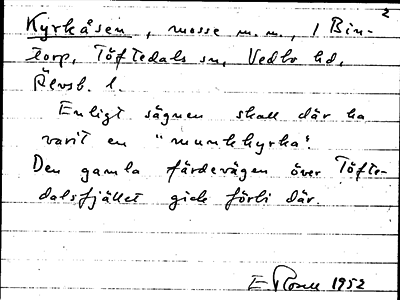 2
Kyrkåsen, mosse m.m., i Bin-
torp, Töftedals sn, Vedbo hd,
Älvsb. l.
Enligt sägnen skall där ha
varit en "munkkyrka".
Den gamla färdevägen över Töfte-
dalsfjället gick förbi där.
E Rosell 1952